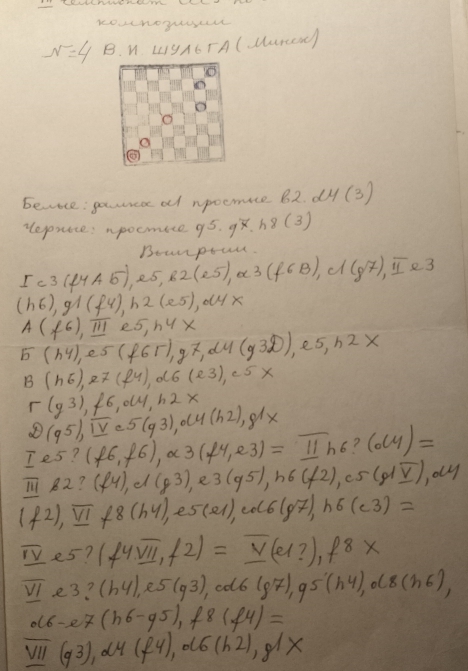 III чемпионат СССР по
композиции
N=4 В. И. ШУЛЬГА (Минск)
Белые: дамка a1 простые b2. d4 (3)
Черные: простые g5. g7. h8 (3)
Выигрыш.
I c3 (f4 А Б), e5, b2 (e5), a3 (f6 В), c1 (g7), II e3
(h6), g1 (f4), h2 (e5), d4 X
А (f6), III e5, h4 X
Б (h4), e5 (f6 Г), g7, d4 (g3 Д), e5, h2 X
В (h6), e7 (f4), d6 (e3), c5 X
Г (g3), f6, d4, h2 X
Д (g5), IV c5 (g3), d4 (h2), g1 X
I e5? (f6, f6), a3 (f4, e3) = II h6? (d4) =
III b2? (f4), c1 (g3), e3 (g5), h6 (f2), c5 (g1 V), d4
(f2), VI f8 (h4), e5 (e1), cd6 (g7), h6 (c3) =
IV e5? (f4 VII, f2) = V (e1?), f8 X
VI e3? (h4), e5 (g3), cd6 (g7), g5 (h4), d8 (h6),
d6-e7 (h6-g5), f8 (f4) =
VII (g3), d4 (f4), d6 (h2), g1 X